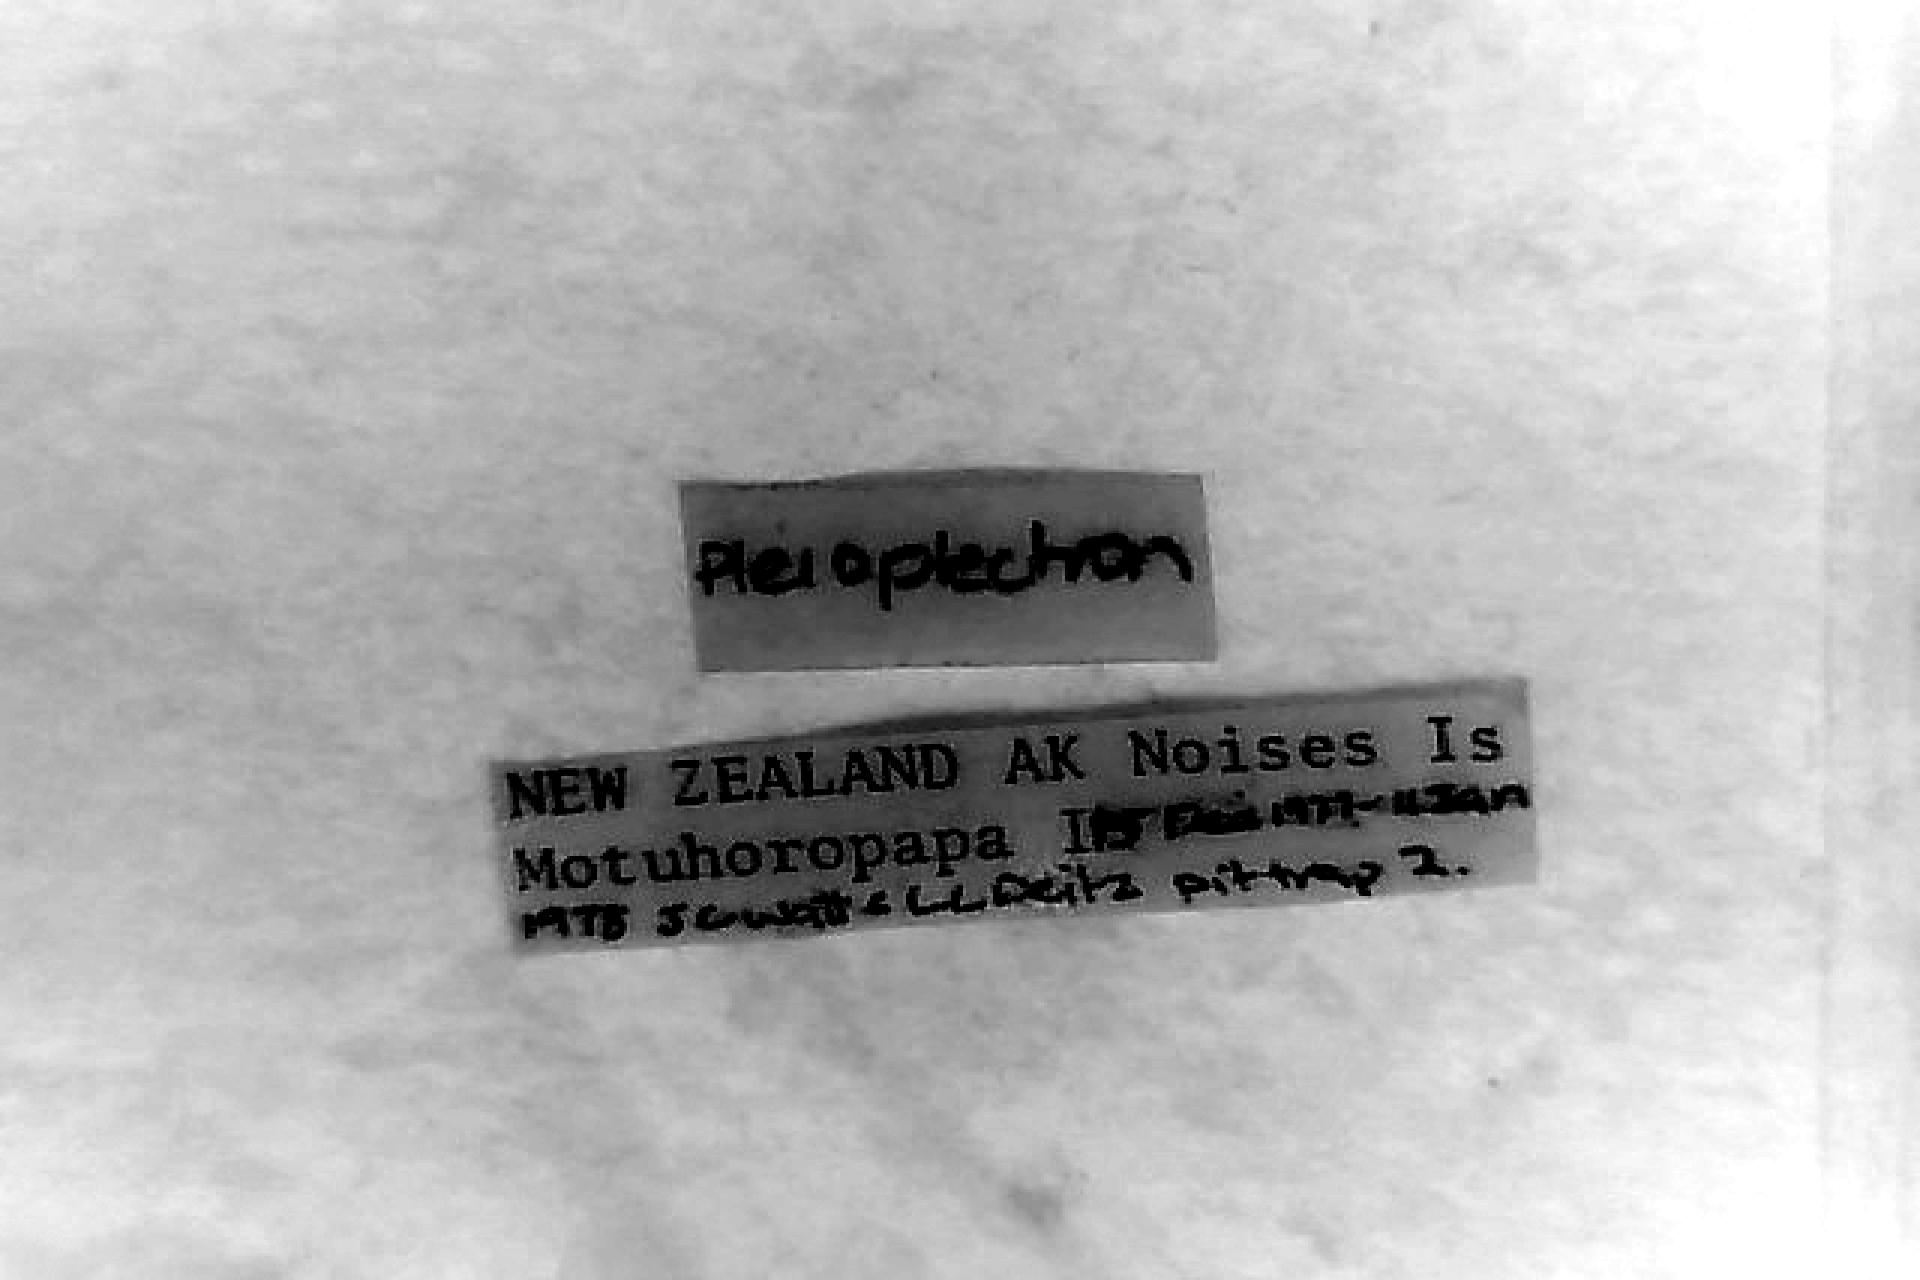 Pleioplectron
NEW ZEALAND AK Noises Is
Motuhoropapa I 15 Dec 1977-11 Jan
1978 JC Watt & LL Deitz pit trap 2.